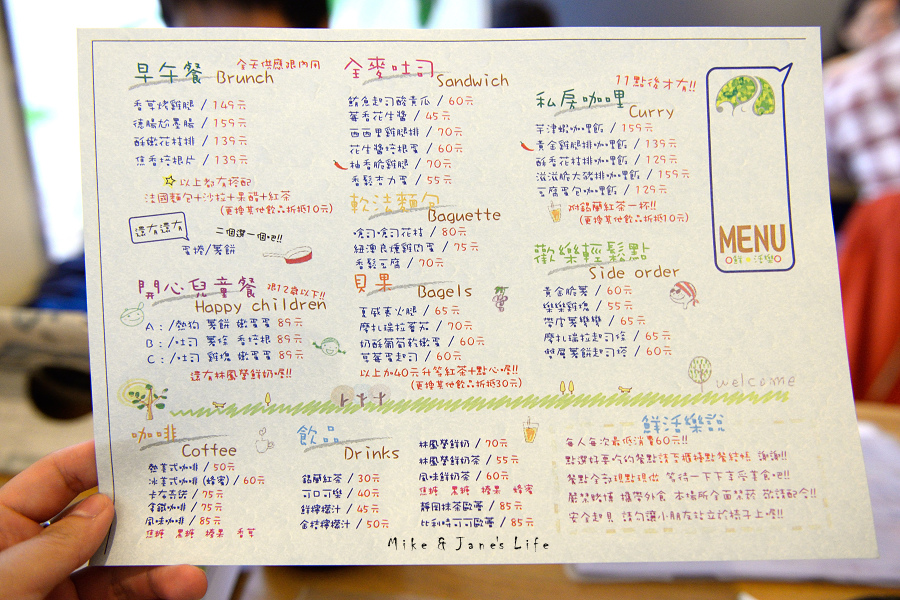 早午餐 Brunch
全天供應跟內用
香草烤雞腿 / 149元
德腸尬墨腸 / 159元
酥嫩花枝排 / 139元
焦香培根片 / 139元
以上都有搭配
法國麵包+沙拉+果醋+紅茶
(更換其他飲品折抵10元)
還有還有
二個選一個吧!!
蛋捲/薯餅
開心兒童餐 限12歲以下!!
Happy children
A：/熱狗 薯餅 嫩蛋蛋 89元
B：/吐司 薯捲 香培根 89元
C：/吐司 雞塊 嫩蛋蛋 89元
還有林鳳營鮮奶喔!!
全麥吐司 Sandwich
鮪魚起司酸黃瓜 / 60元
蕉香花生醬 / 45元
西西里雞腿排 / 70元
花生醬培根蛋 / 60元
柚香脆雞腿 / 70元
香鬆吉力蛋 / 55元
軟法麵包
Baguette
嗆司嗆司花枝 / 80元
紐澳良燻雞肉蛋 / 75元
香鬆豆腐 / 70元
貝果
Bagels
夏威夷火腿 / 65元
摩札瑞拉蕃茄 / 70元
奶酥葡萄軟嫩蛋 / 60元
草莓蛋起司 / 60元
以上加40元升等紅茶+點心喔!!
(更換其他飲品折抵30元)
11點後才有!!
私房咖哩
Curry
芋津嫩咖哩飯 / 159元
黃金雞腿排咖哩飯 / 139元
酥香花枝排咖哩飯 / 129元
滋滋脆大豬排咖哩飯 / 159元
豆腐蛋包咖哩飯 / 129元
附錫蘭紅茶一杯!!
(更換其他飲品折抵10元)
歡樂輕鬆點
Side order
黃金脆薯 / 60元
樂樂雞塊 / 55元
帶皮薯彎彎 / 65元
摩札瑞拉起司捲 / 65元
雙層薯餅起司捲 / 60元
MENU
鮮·活樂
welcome
咖啡
Coffee
熱美式咖啡 / 50元
冰美式咖啡(蜂蜜) / 60元
卡布其諾 / 75元
拿鐵咖啡 / 75元
風味咖啡 / 85元
焦糖 黑糖 榛果 香草
飲品
Drinks
錫蘭紅茶 / 30元
可口可樂 / 40元
鮮檸檬汁 / 45元
金桔檸檬汁 / 50元
林鳳營鮮奶 / 70元
林鳳營鮮奶茶 / 55元
風味鮮奶茶 / 60元
焦糖 黑糖 榛果 蜂蜜
靜岡抹茶歐蕾 / 85元
比利時可可歐蕾 / 85元
鮮活樂說
每人每次最低消費60元!!
點選好要吃的餐點請至櫃檯點餐結帳 謝謝!!
餐點全部現點現做 等待一下下享受美食吧!!
嚴禁賭博 攜帶外食 本場所全面禁菸 敬請配合!!
安全起見 請勿讓小朋友站立於椅子上喔!!
Mike & Jane's Life